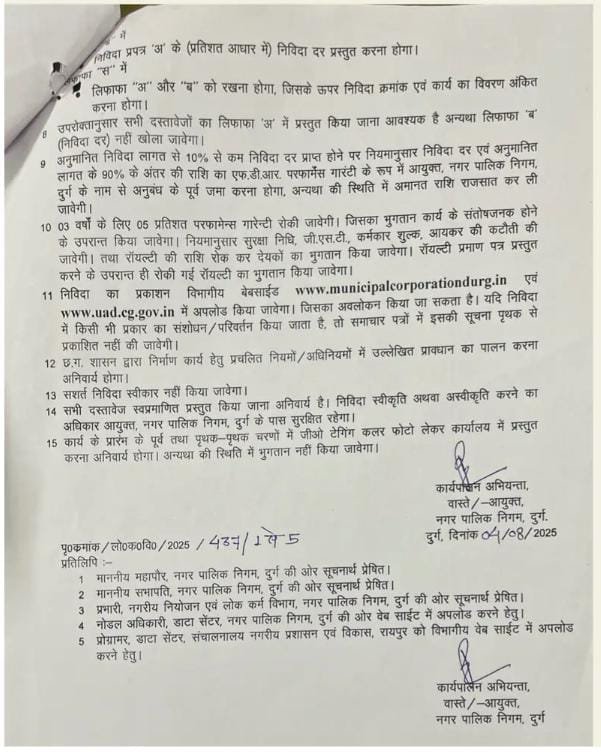 में
निविदा प्रपत्र 'अ' के (प्रतिशत आधार में) निविदा दर प्रस्तुत करना होगा।
"स" में
लिफाफा "अ" और "ब" को रखना होगा, जिसके ऊपर निविदा क्रमांक एवं कार्य का विवरण अंकित
करना होगा।
8 उपरोक्तानुसार सभी दस्तावेजों का लिफाफा 'अ' में प्रस्तुत किया जाना आवश्यक है अन्यथा लिफाफा 'ब'
(निविदा दर) नहीं खोला जावेगा।
9 अनुमानित निविदा लागत से 10% से कम निविदा दर प्राप्त होने पर नियमानुसार निविदा दर एवं अनुमानित
लागत के 90% के अंतर की राशि का एफ.डी.आर. परफार्मेंस गारंटी के रूप में आयुक्त, नगर पालिक निगम,
दुर्ग के नाम से अनुबंध के पूर्व जमा करना होगा, अन्यथा की स्थिति में अमानत राशि राजसात कर ली
जावेगी।
10 03 वर्षो के लिए 05 प्रतिशत परफामेन्स गारेन्टी रोकी जावेगी। जिसका भुगतान कार्य के संतोषजनक होने
के उपरान्त किया जावेगा। नियमानुसार सुरक्षा निधि, जी.एस.टी., कर्मकार शुल्क, आयकर की कटौती की
जावेगी। तथा रॉयल्टी की राशि रोक कर देयकों का भुगतान किया जावेगा। रॉयल्टी प्रमाण पत्र प्रस्तुत
करने के उपरान्त ही रोकी गई रॉयल्टी का भुगतान किया जावेगा।
11 निविदा का प्रकाशन विभागीय बेबसाईड www.municipalcorporationdurg.in एवं
www.uad.cg.gov.in में अपलोड किया जावेगा। जिसका अवलोकन किया जा सकता है। यदि निविदा
में किसी भी प्रकार का संशोधन/परिवर्तन किया जाता है, तो समाचार पत्रों में इसकी सूचना पृथक से
प्रकाशित नहीं की जावेगी।
12 छ.ग. शासन द्वारा निर्माण कार्य हेतु प्रचलित नियमों/अधिनियमों में उल्लेखित प्रावधान का पालन करना
अनिवार्य होगा।
13 सशर्त निविदा स्वीकार नहीं किया जावेगा।
14 सभी दस्तावेज स्वप्रमाणित प्रस्तुत किया जाना अनिवार्य है। निविदा स्वीकृति अथवा अस्वीकृति करने का
अधिकार आयुक्त, नगर पालिक निगम, दुर्ग के पास सुरक्षित रहेगा।
15 कार्य के प्रारंम के पूर्व तथा पृथक–पृथक चरणों में जीओ टेगिंग कलर फोटो लेकर कार्यालय में प्रस्तुत
करना अनिवार्य होगा। अन्यथा की स्थिति में भुगतान नहीं किया जावेगा।
कार्यपालन अभियन्ता,
वास्ते/–आयुक्त,
नगर पालिक निगम, दुर्ग.
दुर्ग, दिनांक 04/08/2025
पृ०कमांक/लो०क०वि०/2025 / 437/
प्रतिलिपि :–
1 माननीय महापौर, नगर पालिक निगम, दुर्ग की ओर सूचनार्थ प्रेषित।
2 माननीय सभापति, नगर पालिक निगम, दुर्ग की ओर सूचनार्थ प्रेषित।
3 प्रभारी, नगरीय नियोजन एवं लोक कर्म विभाग, नगर पालिक निगम, दुर्ग की ओर सूचनार्थ प्रेषित।
4 नोडल अधिकारी, डाटा सेंटर, नगर पालिक निगम, दुर्ग की ओर वेब साईट में अपलोड करने हेतु।
5 प्रोग्रामर, डाटा सेंटर, संचालनालय नगरीय प्रशासन एवं विकास, रायपुर को विभागीय वेब साईट में अपलोड
करने हेतु।
कार्यपालन अभियन्ता,
वास्ते/–आयुक्त,
नगर पालिक निगम, दुर्ग